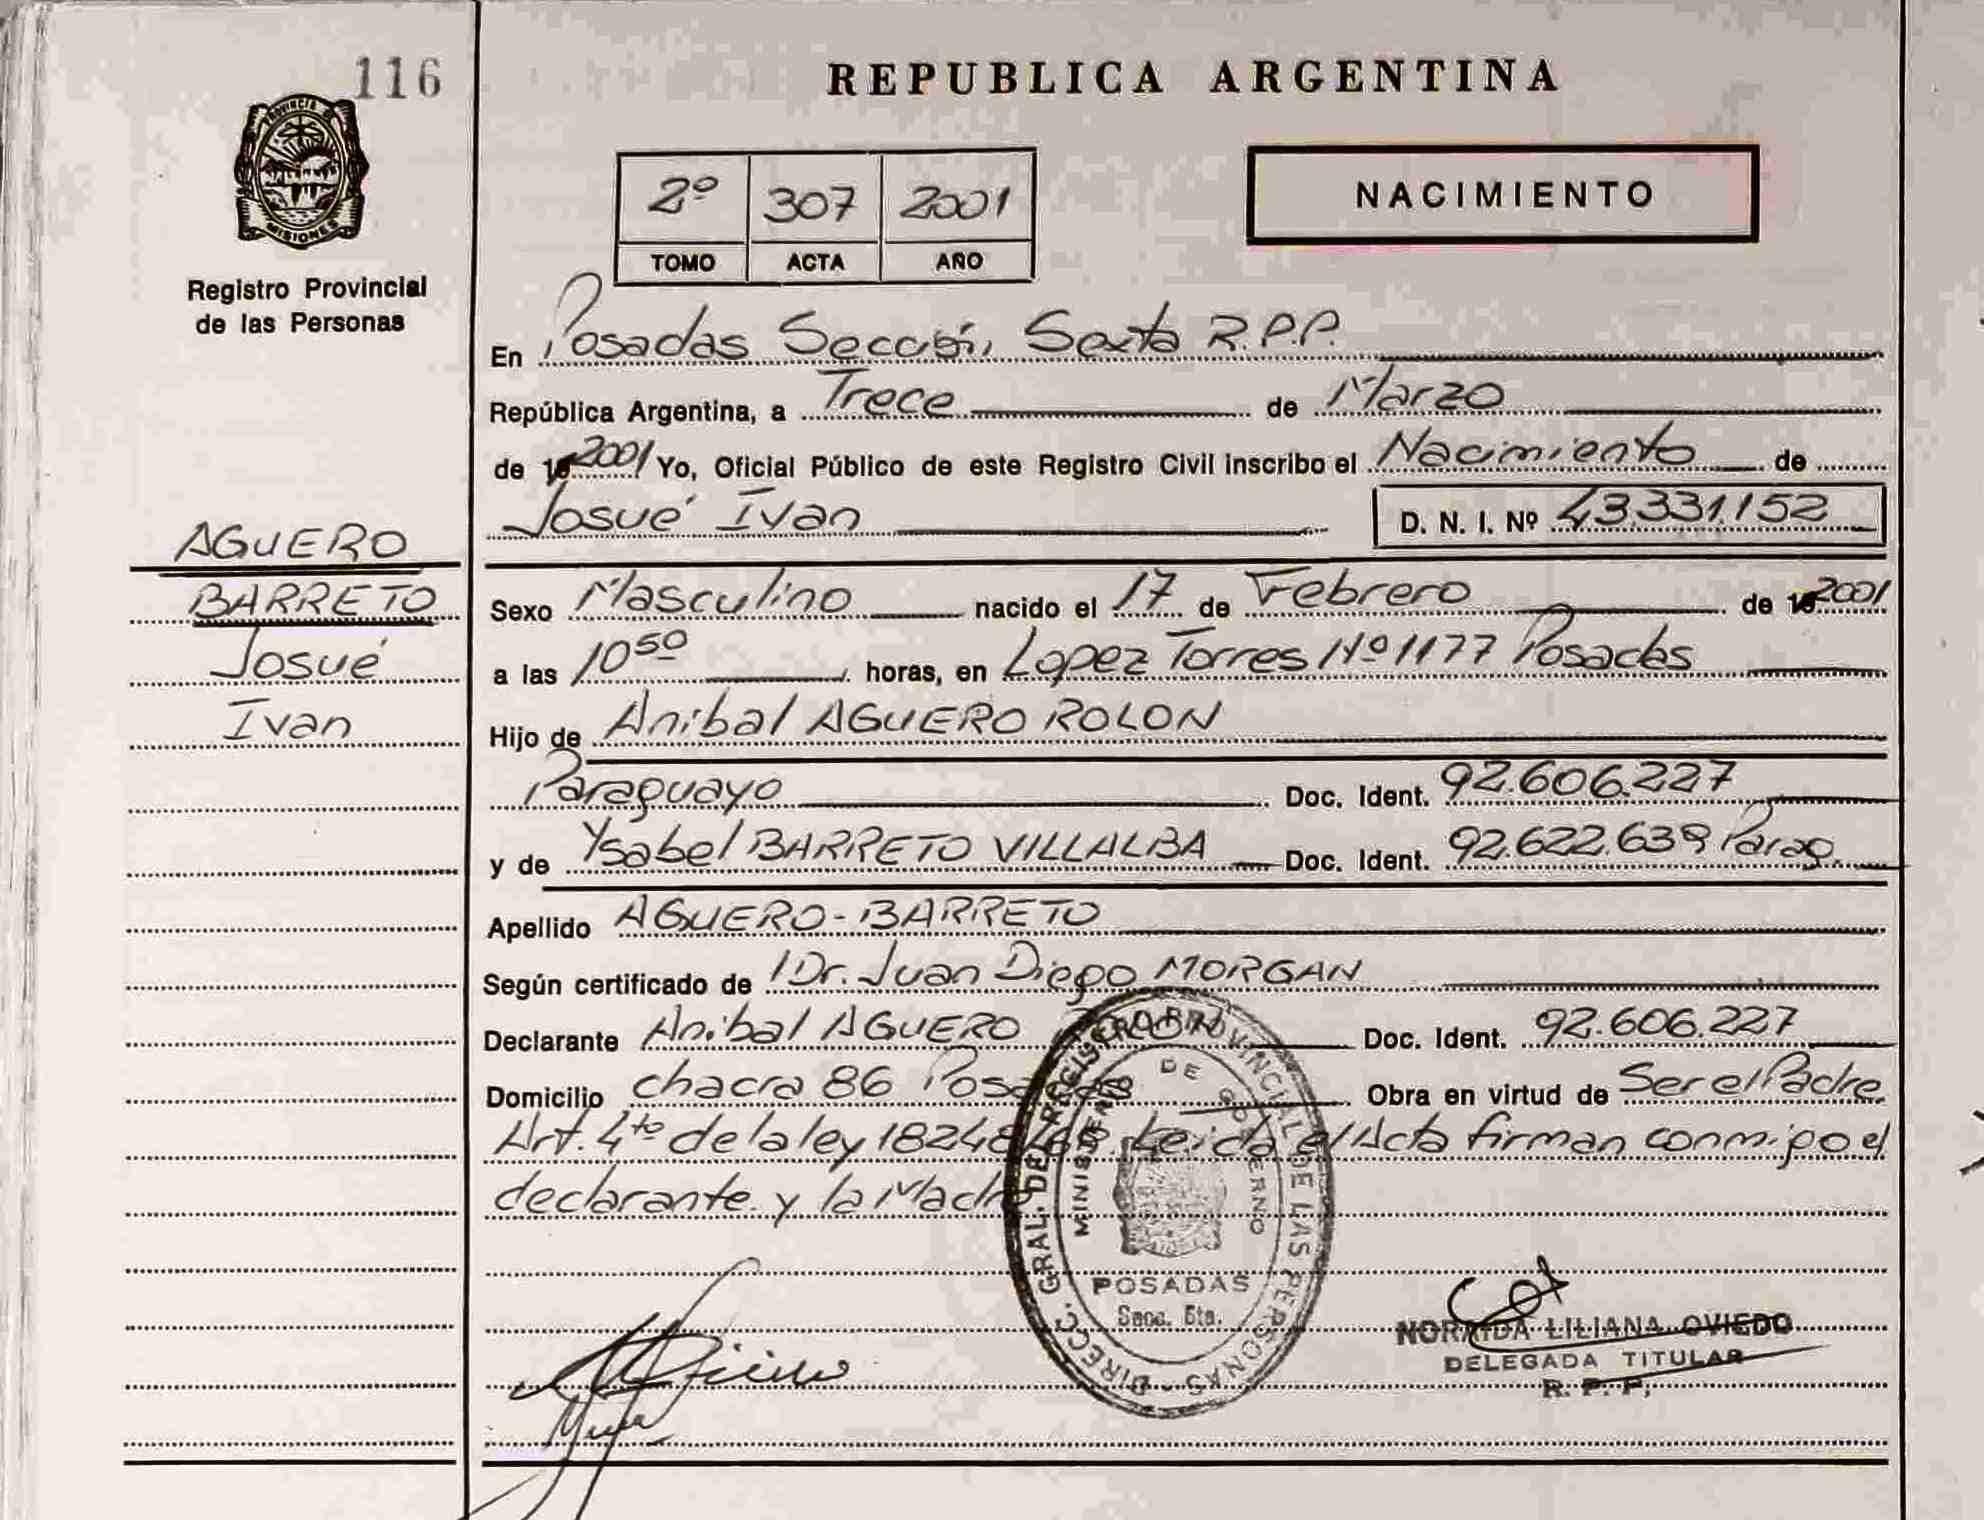 116
PROVINCIA DE
MISIONES
Registro Provincial
de las Personas
AGUERO
BARRETO
Josué
Ivan
REPUBLICA ARGENTINA
2º 307 2001
TOMO ACTA AÑO
NACIMIENTO
En Posadas Sección Sexta R.P.P.
República Argentina, a Trece de Marzo
de 2001 Yo, Oficial Público de este Registro Civil inscribo el Nacimiento de
Josué Ivan D. N. I. Nº 43.331.152
Sexo Masculino nacido el 17 de Febrero de 2001
a las 10 50 horas, en Lopez Torres Nº 1177 Posadas
Hijo de Anibal AGUERO ROLON
Paraguayo Doc. Ident. 92.606.227
y de Ysabel BARRETO VILLALBA Doc. Ident. 92.622.639 Parag.
Apellido AGUERO-BARRETO
Según certificado de Dr. Juan Diego MORGAN
Declarante Anibal AGUERO ROLON Doc. Ident. 92.606.227
Domicilio chacra 86 Posadas Obra en virtud de Ser el Padre
Art. 4to de la ley 18248 Leida el Acta firman conmigo el
declarante y la Madre
DIRECC. GRAL. DE REGISTRO PROVINCIAL DE LAS PERSONAS
MINISTERIO DE GOBIERNO
POSADAS
Secc. 6ta.
NORAIDA LILIANA OVIEDO
DELEGADA TITULAR
R. P. P.